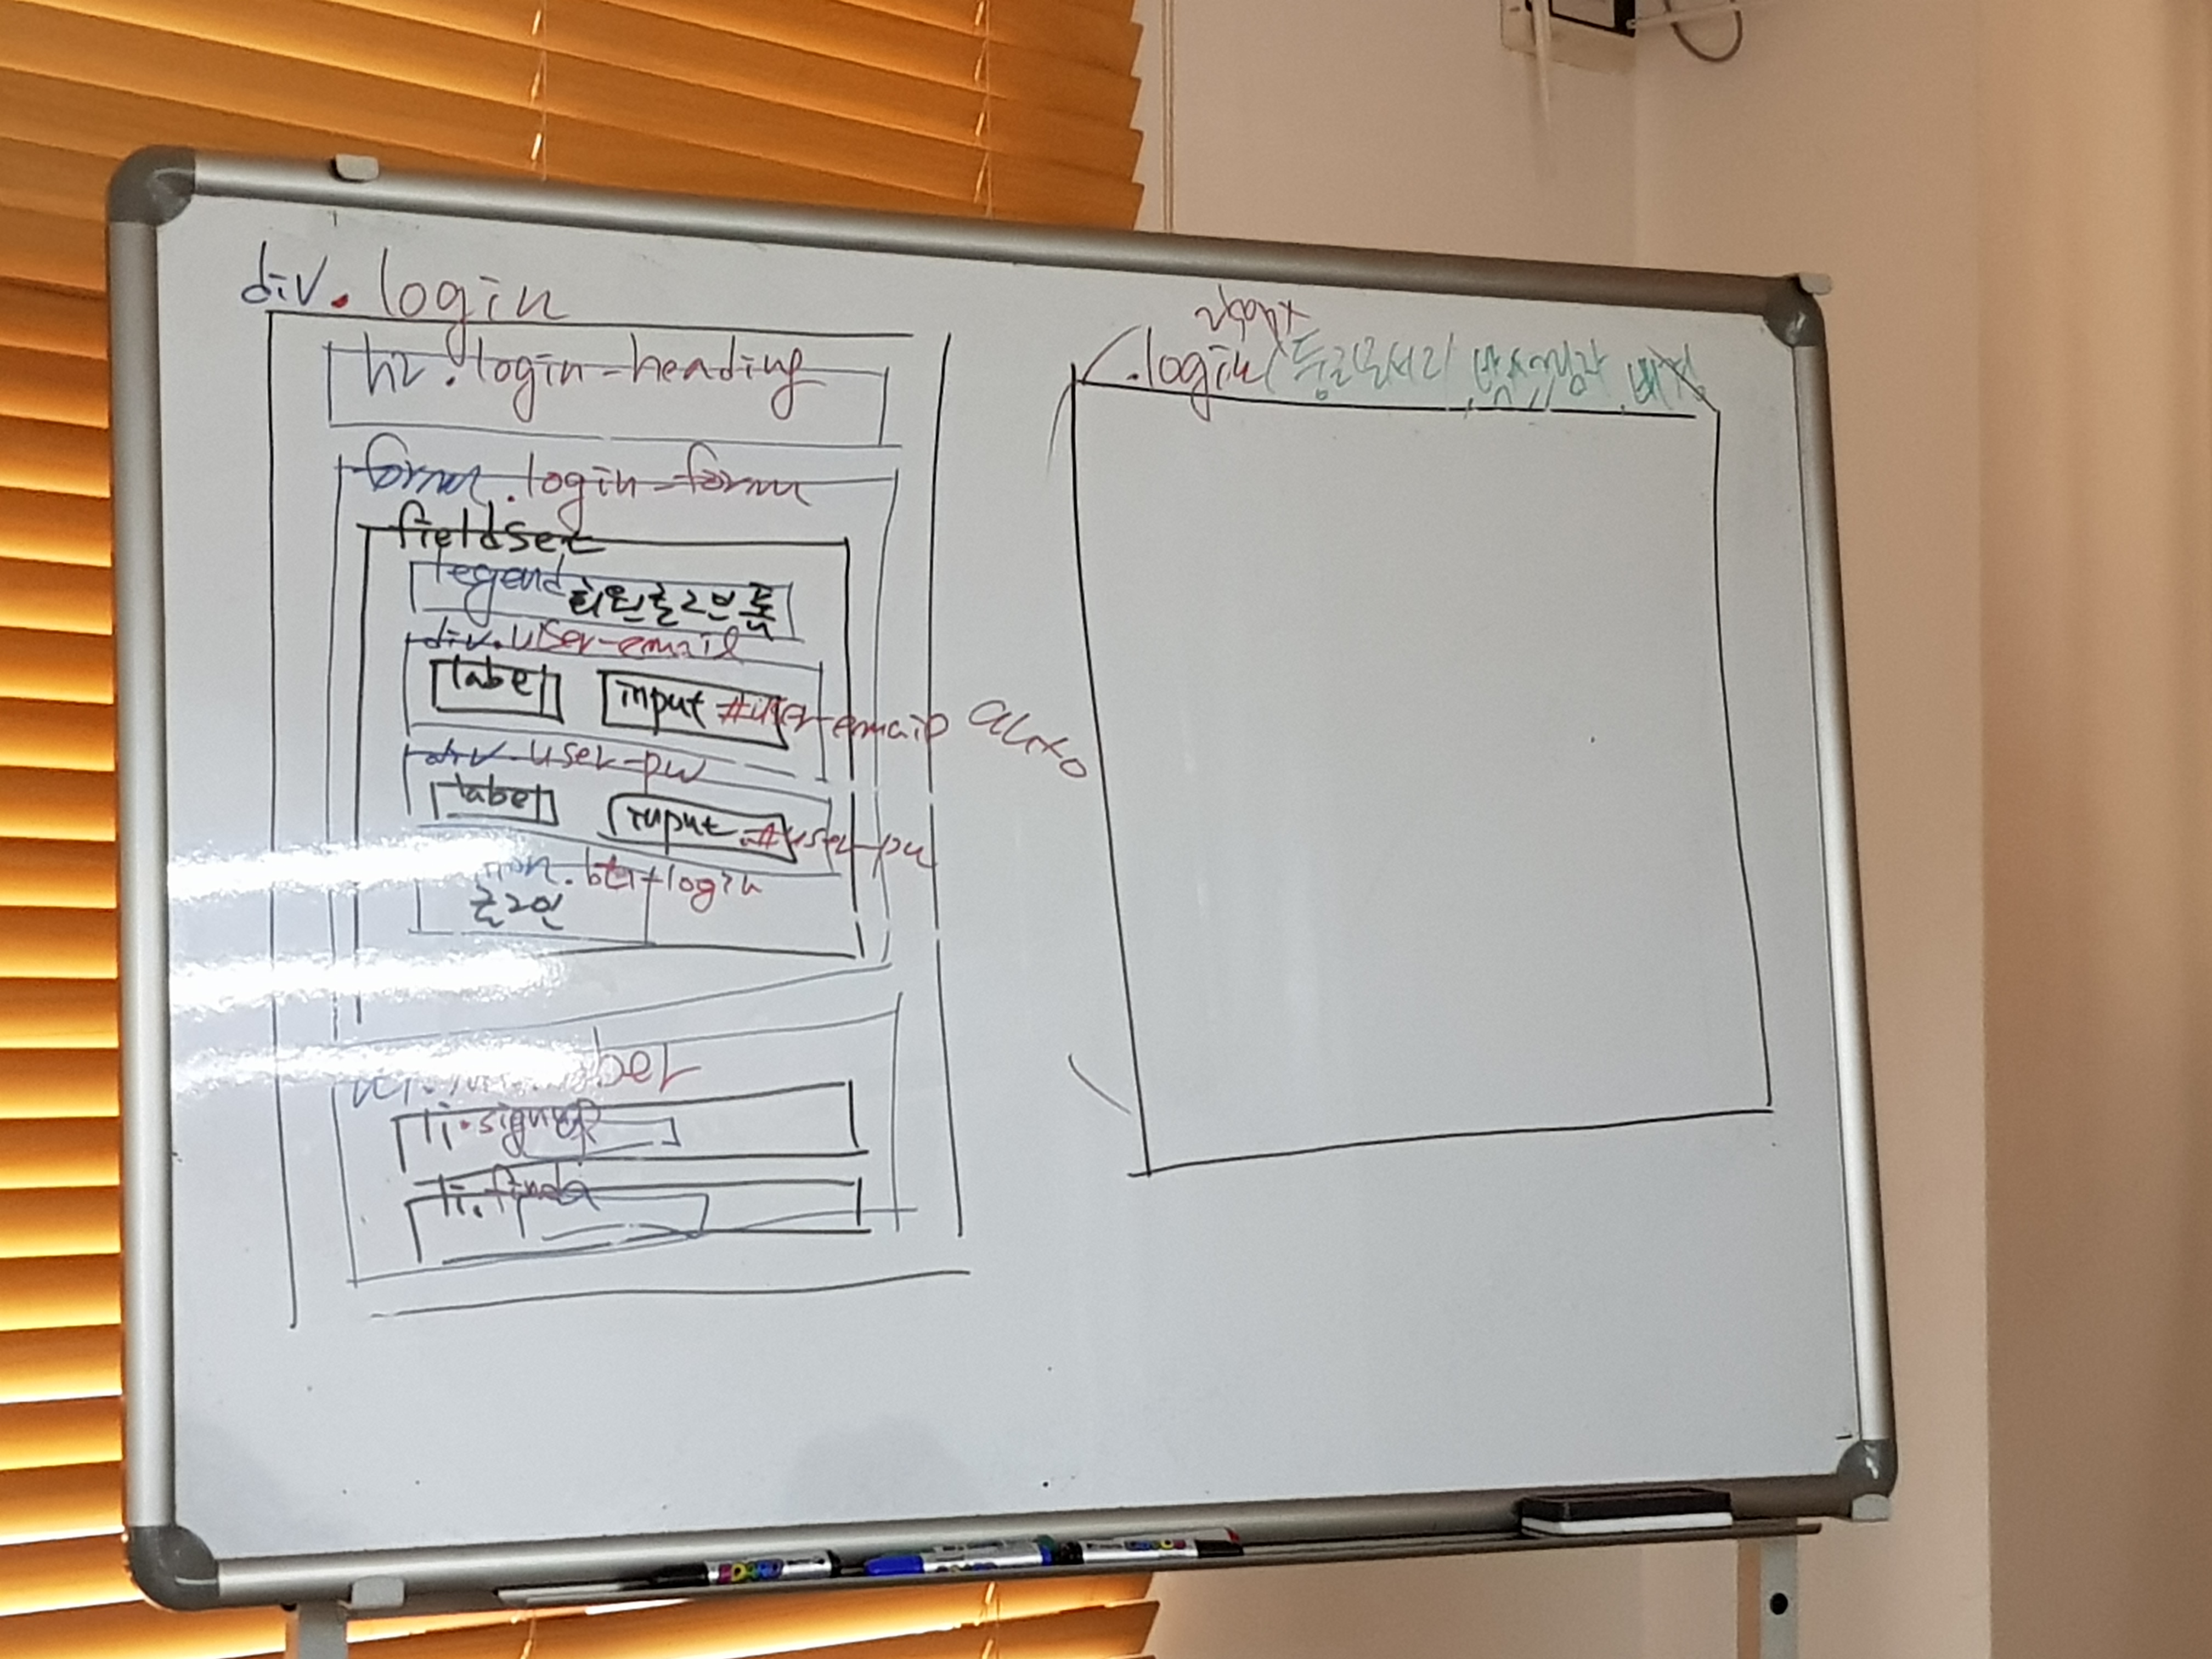 div.login
h2.login-heading
form.login-form
fieldset
legend 회원로그인 폼
div.user-email
label input #user-email
div.user-pw
label input #user-pw
.btn-login
로그인
li.signup
li.find
auto
.login 둥근모서리, 박스그림자, 배치